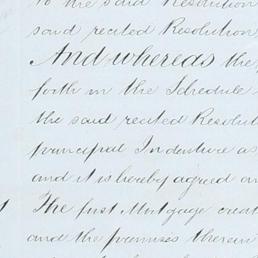 to the said Resolution
said recited Resolution
And whereas the
forth in the Schedule
the said recited Resolut
principal Indenture as
and it is hereby agreed an
The first Mortgage creat
and the premises therein